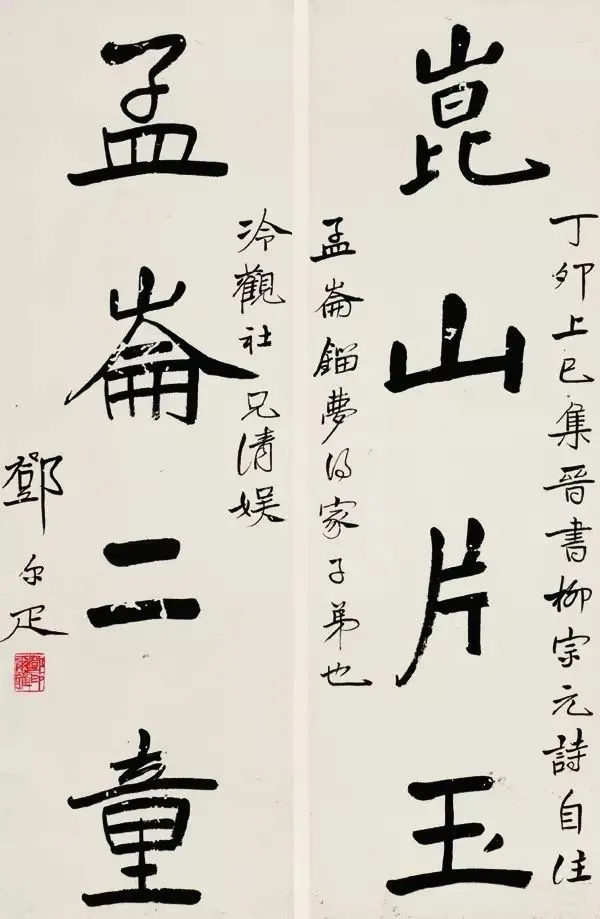 崑山片玉
丁卯上巳集晉書柳宗元詩自注
孟崙鎦夢得家子弟也
孟崙二童
泠觀社兄清娱
鄧尔疋